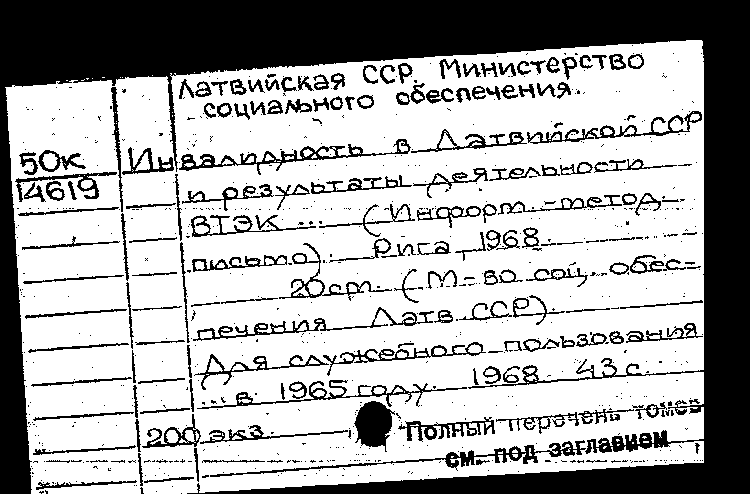 Латвийская ССР. Министерство
социального обеспечения.
50к
14619
Инвалидность в Латвийской ССР
и результаты деятельности
ВТЭК ... (Информ.-метод.
письмо). Рига, 1968.
20см. (М-во соц. обес-
печения Латв. ССР).
Для служебного пользования
... в 1965 году. 1968. 43 с.
200 экз.
Полный перечень томов
см. под заглавием